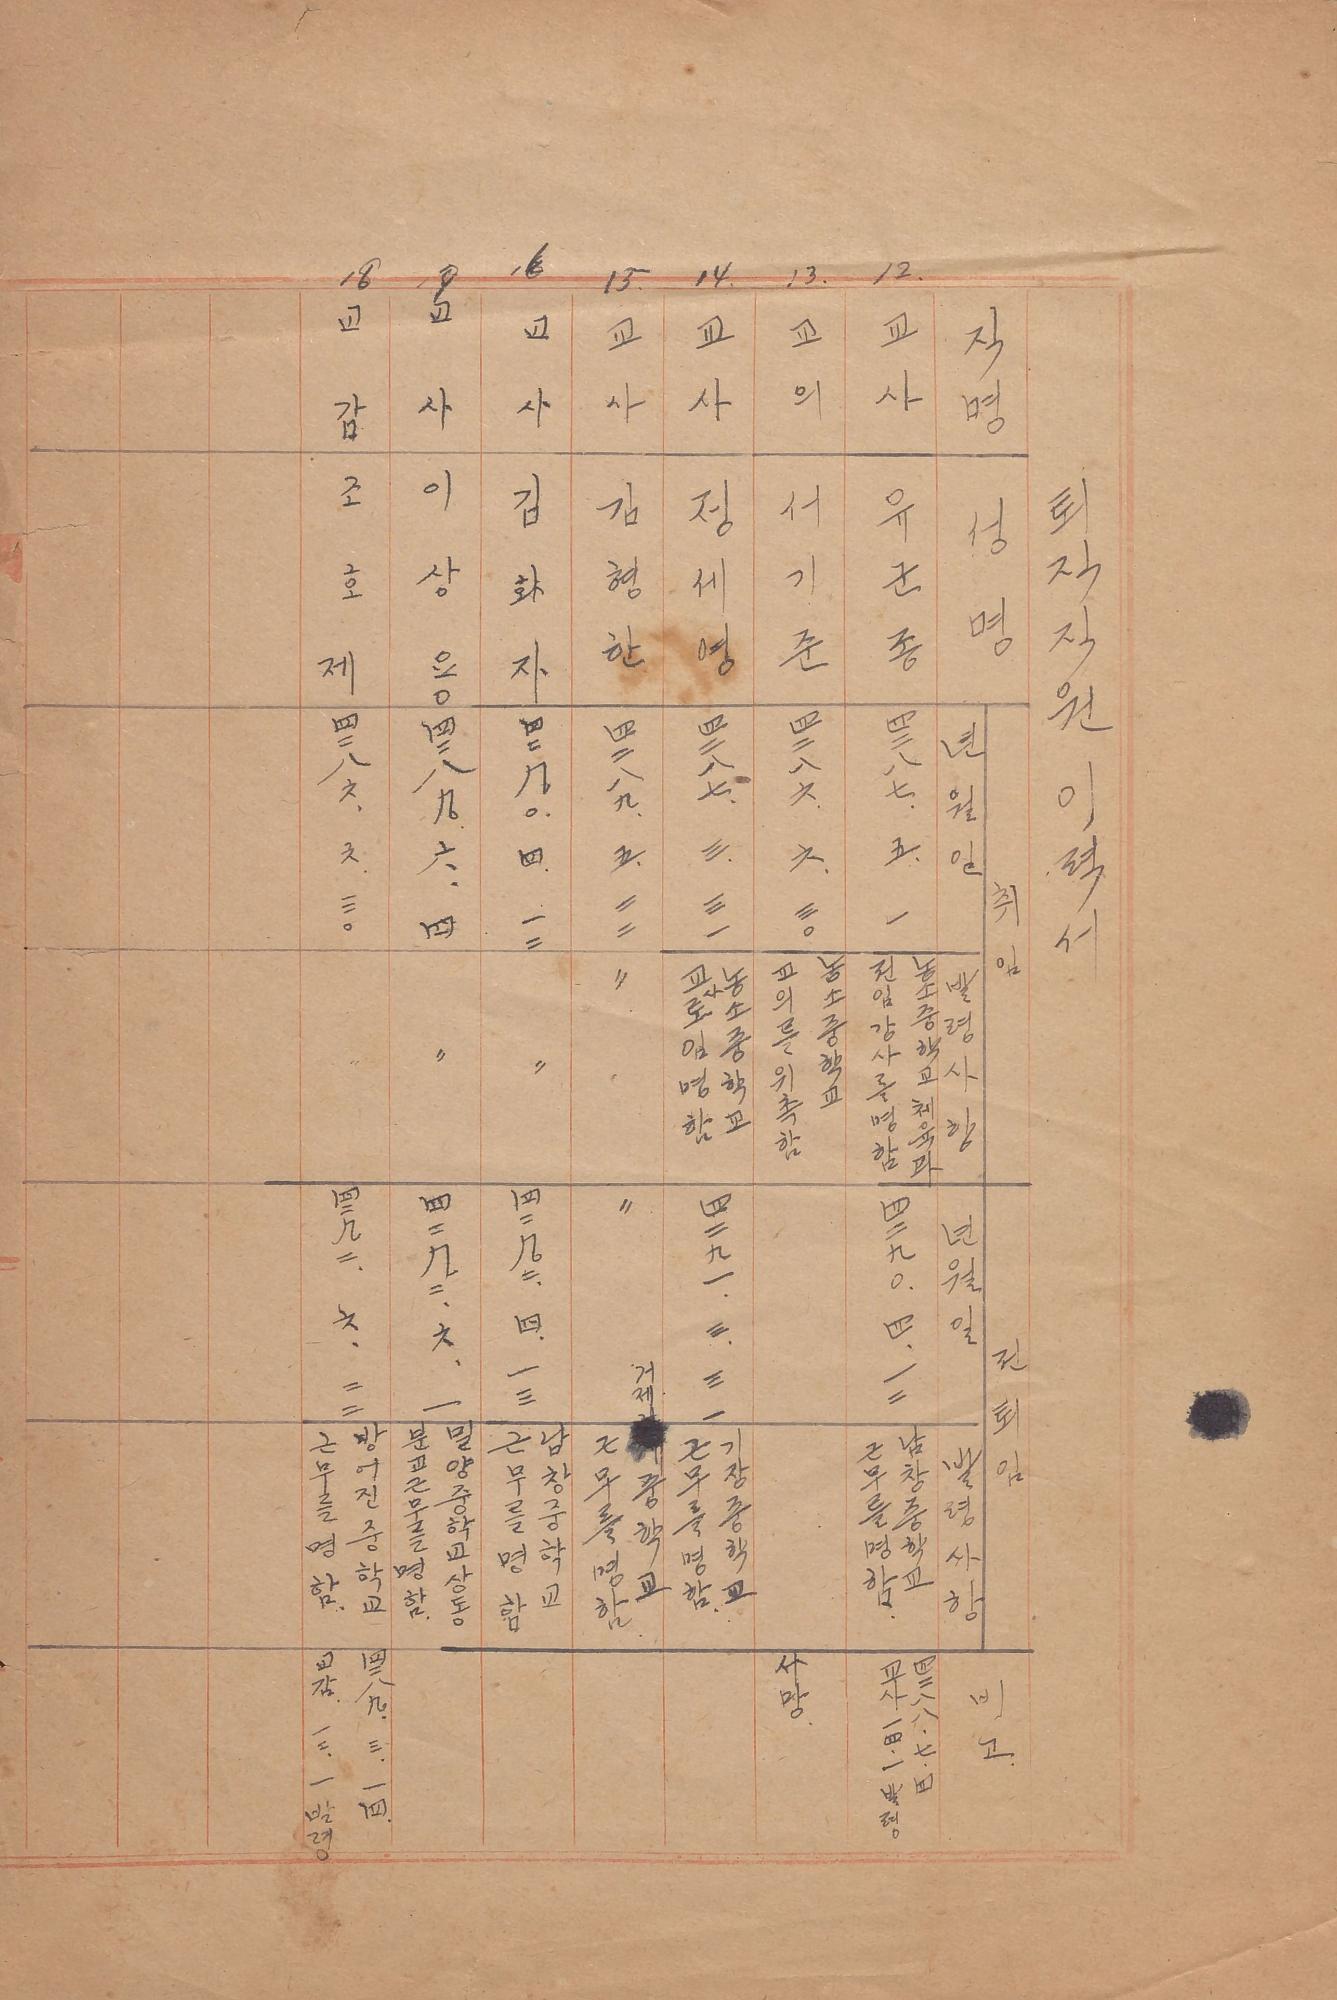 퇴직직원 이력서
직명
성명
취임
년월일
발령사항
전퇴임
년월일
발령사항
비고.
12.
교사
유근종
四二八七. 五. 一
농소중학교 체육과
전임강사를 명함
四二九〇. 四. 一二
남창중학교
근무를 명함.
四二八八. 七. 四
교사 一四. 一 발령
13.
교의
서기준
四二八六. 六. 三〇
농소중학교
교의를 위촉함
사망.
14.
교사
정세영
四二八七. 三. 三一
농소중학교
교사로 임명함
四二九一. 三. 三一
기장중학교
근무를 명함.
15.
교사
김형한
四二八九. 五. 二二
〃
〃
거제
중학교
근무를 명함.
16
교사
김화자
四二九〇. 四. 一二
〃
四二九二. 四. 一三
남창중학교
근무를 명함
교사
이상웅
四二八九. 六. 四
〃
四二九二. 六. 一
밀양중학교 상동
분교근무를 명함.
18
교감
조호제
四二八六. 六. 三〇
〃
四二九二. 六. 二二
방어진중학교
근무를 명함.
四二八九. 三. 一四.
교감. 一三. 一 발령